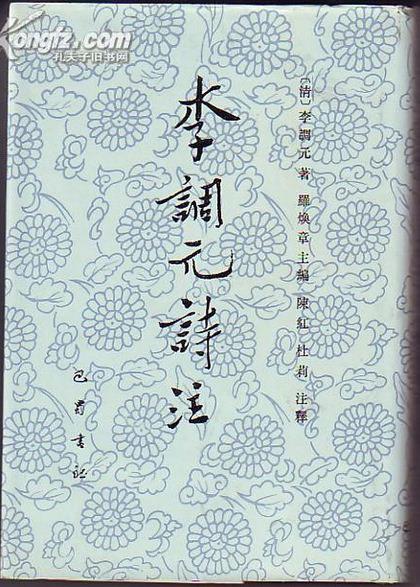 〔清〕李調元著 羅煥章主編 陳紅 杜莉 注釋
李調元詩注
巴蜀書社
Kongfz.com
孔夫子旧书网